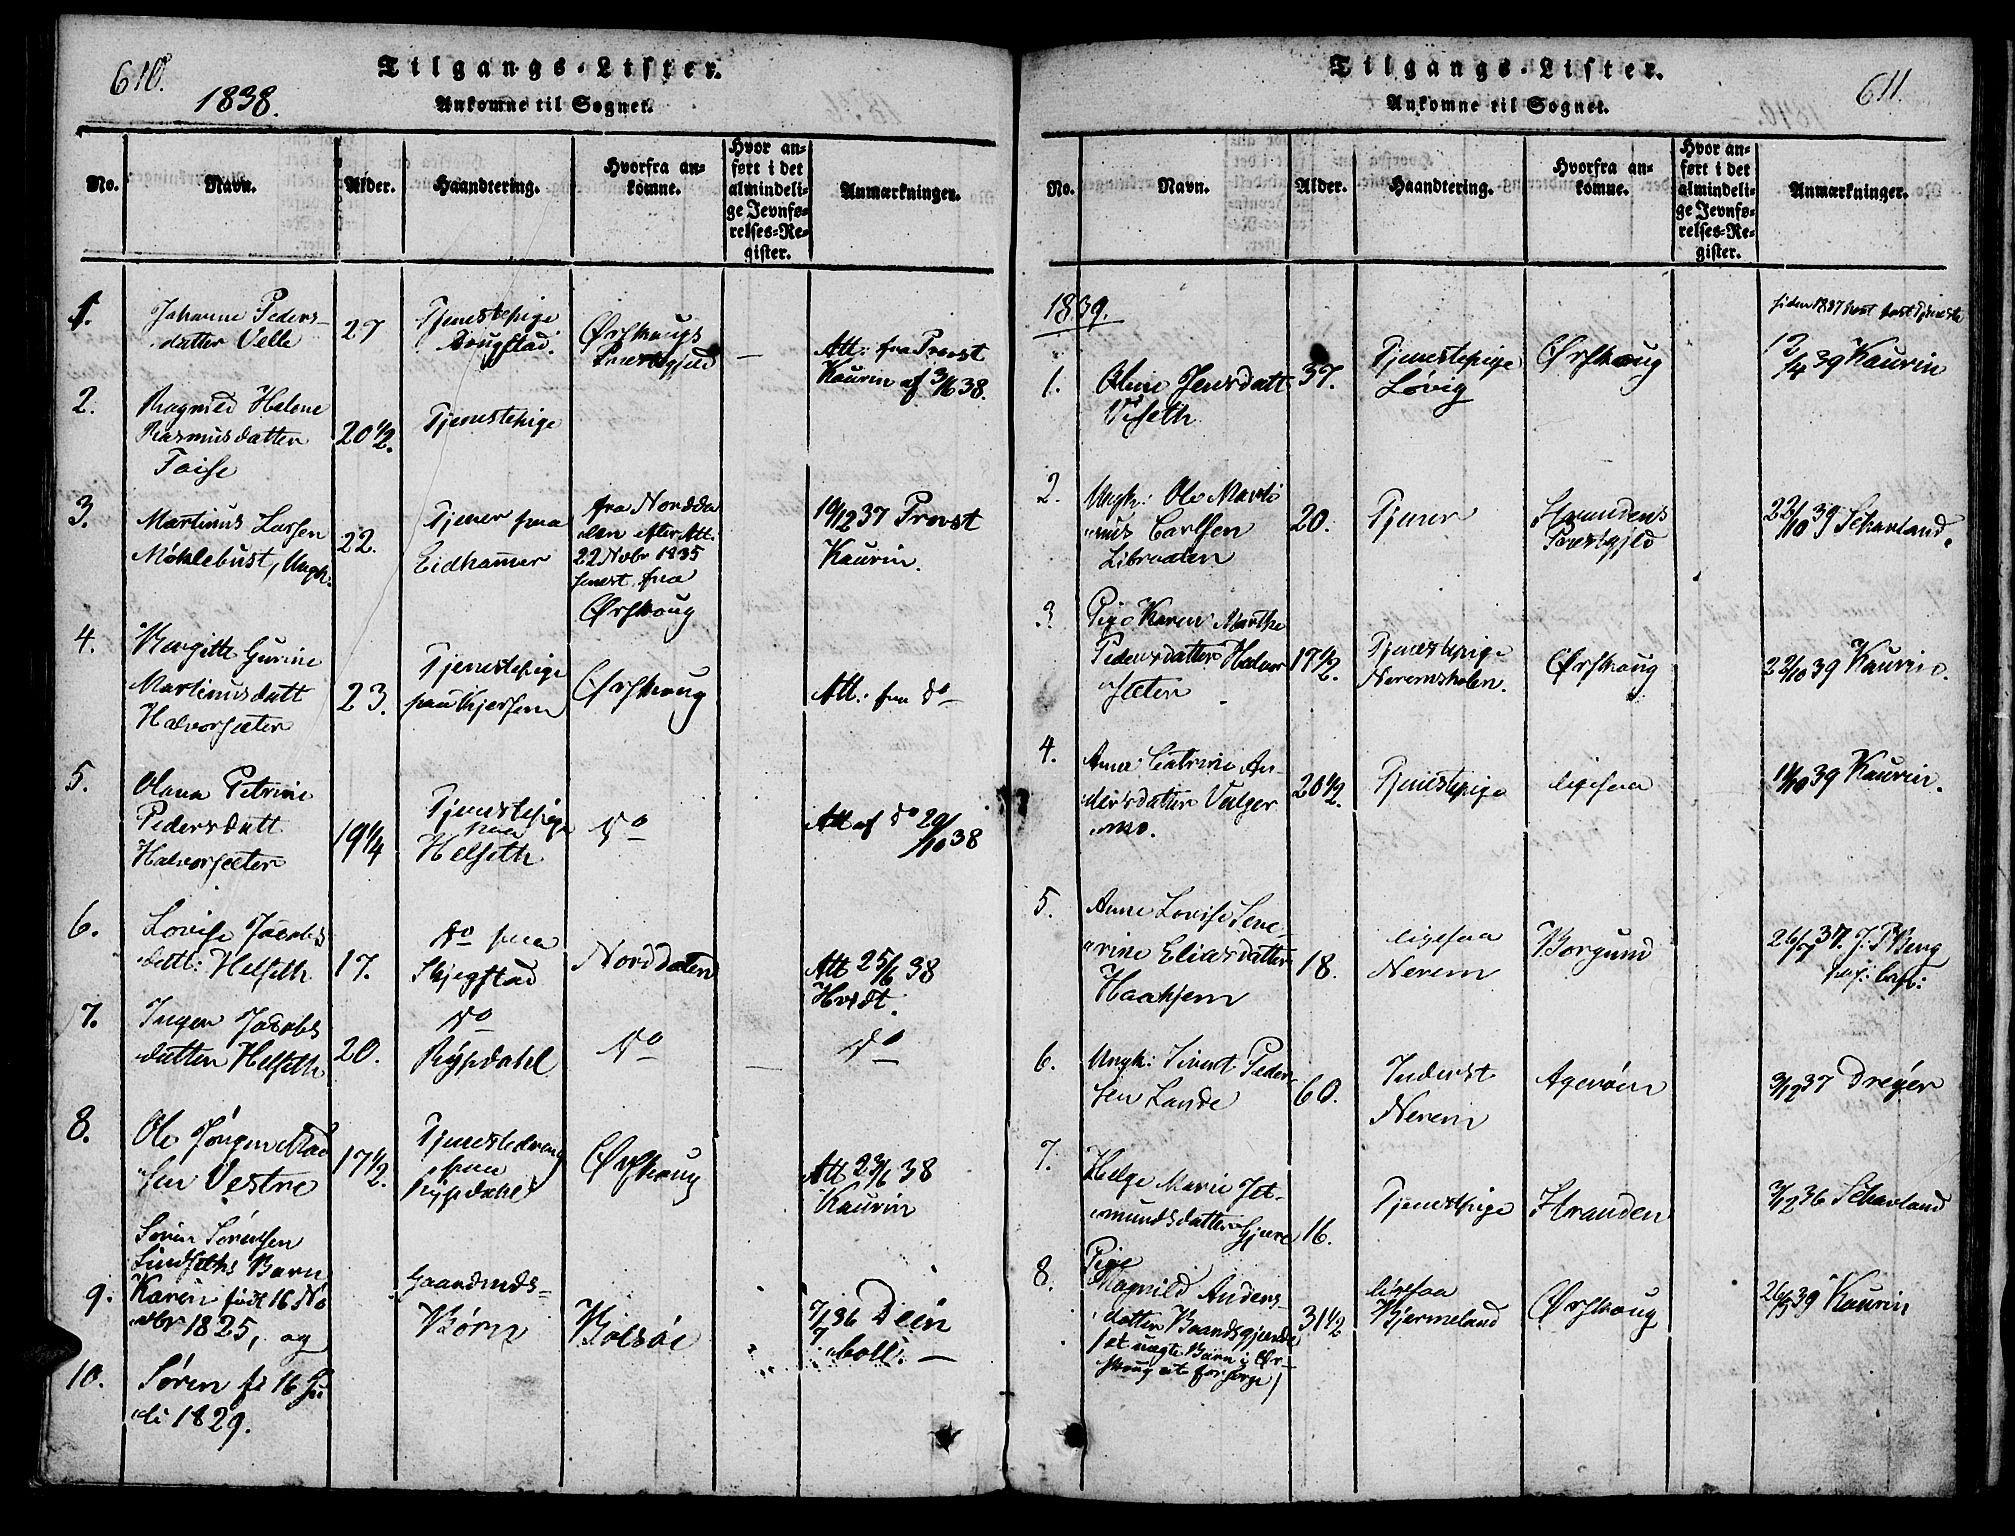 610.
1838.
Tilgangs-Lister.
Ankomne til Sognet.
No.
Navn.
Alder.
Haandtering.
Hvorfra an-
komne.
Hvor an-
ført i det
almindeli-
ge Jevnfø-
relses-Re-
gister.
Anmærkninger.
1.
Johanne Peders-
datter Velle
27
Tjenestepige
Ørskougs
Præstegjeld
—
Att: fra Provst
Kaurin af 3/6 38.
2.
Ragnild Helene
Rasmusdatter
20 1/2.
Tjenestepige
3.
Martinus Larsen
Møklebust, Ungk.
22.
Tjener paa
Eidhamer
fra Nordda
len efter Att.
22 Novbr 1835
senest fra
Ørskoug
19/12 37 Provst
Kaurin.
4.
Bergitte Gurine
Martinusdatt
Halvorsæter
23.
Tjenestepige
paa
Ørskoug
Att: fra do
5.
Olana Petrine
Pedersdatt
Halvorsæter
19 1/4
Tjenestepige
paa
Helseth
do
Att af do 29/10 38
6.
Lovise Jacobs
datt: Helseth
17.
do paa
Skjegstad
Norddalen
Att 25/6 38
Hvidt.
7.
Inger Jacobs
datter Helseth
20.
do
Rypdahl
do
do
8.
Ole Jørgen
sen Vestre
17 1/2.
Tjenestedreng
paa
Rypdahl
Ørskoug
Att 23/6 38
Kaurin
9.
Søren Sørensen
Lindseths Barn
Karen født 16 No
vbr 1825, og
Gaardmds-
Børn
Bolsøe
7/7 36 Dein
boll. —
10.
Søren f: 16 Ju
li 1829.
611.
Tilgangs-Lister.
Ankomne til Sognet.
No.
Navn.
Alder.
Haandtering.
Hvorfra an-
komne.
Hvor an-
ført i det
almindeli-
ge Jevnfø-
relses-Re-
gister.
Anmærkninger.
1839.
siden 1837
1.
Oline Jensdatt
Viseth
37.
Tjenestepige
Løvig
Ørskoug
12/4 39 Kaurin
2.
Ungk: Ole Marti
nus Carlsen
20.
Tjener
Strandens
Præstegjld
22/10 39 Schavland.
3.
Pige Karen Marthe
Pedersdatter Halvor
sæter
17 1/2.
Tjenestepige
Neremsholen.
Ørskoug
22/10 39 Kaurin.
4.
Anne Catrine An-
dersdatter
20 1/2.
Tjenestepige
ligesaa
11/10 39 Kaurin.
5.
Anne Lovise Seve-
rine Eliasdatter
Haakjem
18.
ligesaa
Nerem
Borgund
26/7 37. J. P. Berg
6.
Ungk: Sivert Peder-
sen Lande
60.
Inderst
Nerem
Agerøen
3/12 37 Dreyer
7.
Helge Marie Jet-
mundsdatter Gjære
16.
Tjenestpige
Stranden
3/12 36 Schavland
8.
Pige
Magnild Anders-
datter
(et uægte Barn i Ør-
skoug at forsørge)
31 1/2
ligesaa
Bjermeland
Ørskoug
26/3 39 Kaurin